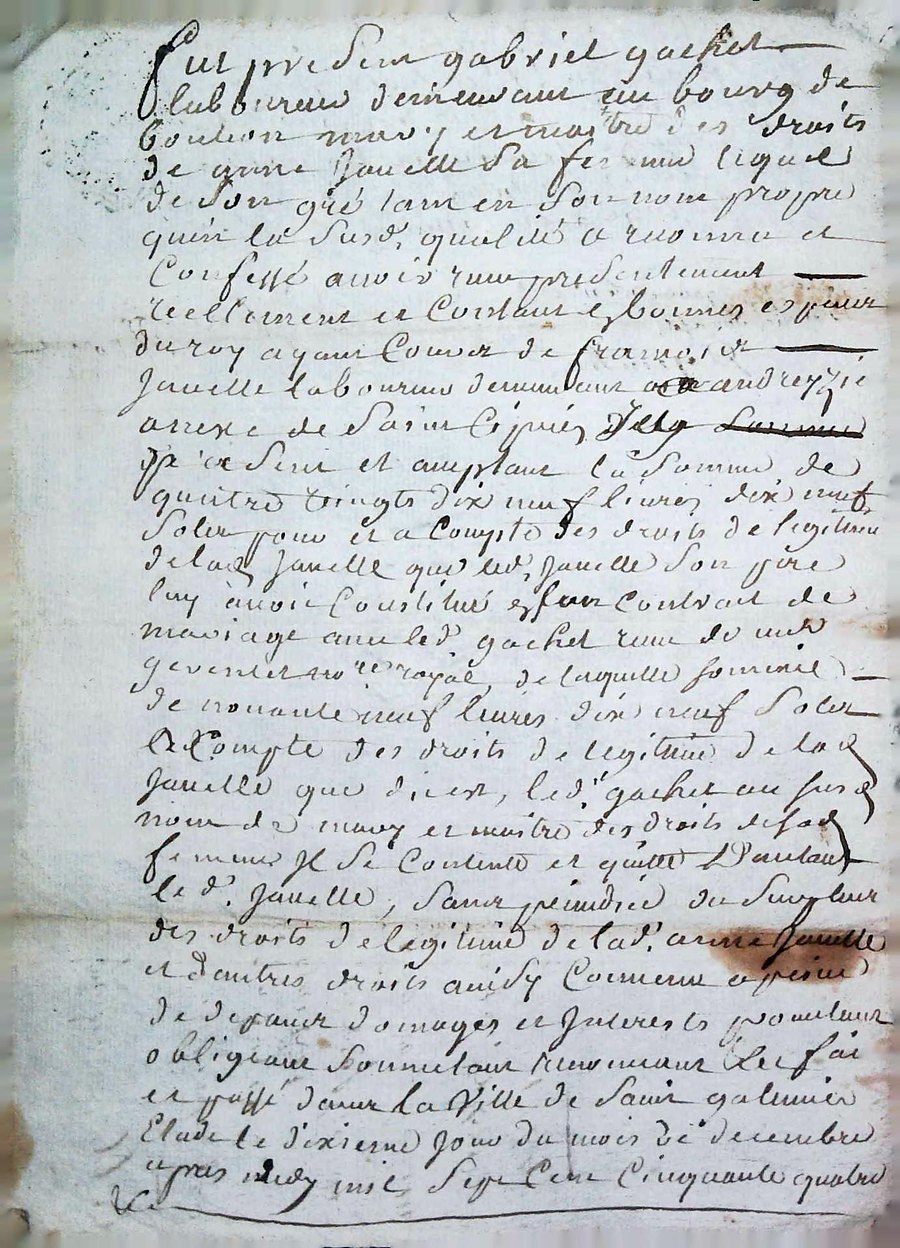 Fut present gabriel gachet
laboureur demeurant au bourg de
bouteon mary et maitre des droits
de anne Javelle Sa femme lequel
de Son gré tant en Son nom propre
quen la Susd. qualité a reconnu et
Confessé avoir receu presentement
reellement et Contant es bonnes especes
du roy ayant Cours de francois
Javelle laboureur demeurant a andrezzie
annexe de Saint Ciprien Jcy
present et acceptant la Somme de
quattre vingts dix neuf livres dix neuf
Solz pour et a Compte des droits de legitime
de lad Javelle que led. Javelle Son pere
luy avoit Constitué en son Contrait de
mariage avec led gachet receu de me
not.re royal, de laquelle somme
de nonante neuf livres dix neuf Solz
a Compte des droits de legitime de lad
Javelle que dicest, led. gachet au susd
nom de mary et maitre des droits de sad
femme Jl Se Contente et quitte D'autant
led. Javelle, Sans prejudice du Surplus
des droits de legitime de lad. anne Javelle
et d'autres droits ainsy Convenu a peine
de depans domages et Jnterests
obligeant Soumetant renonceant &c fai
et passé dans la Ville de Saint galmier
Etude le dixieme Jour du mois de decembre
apres midy mil Sept Cent Cinquante quatre